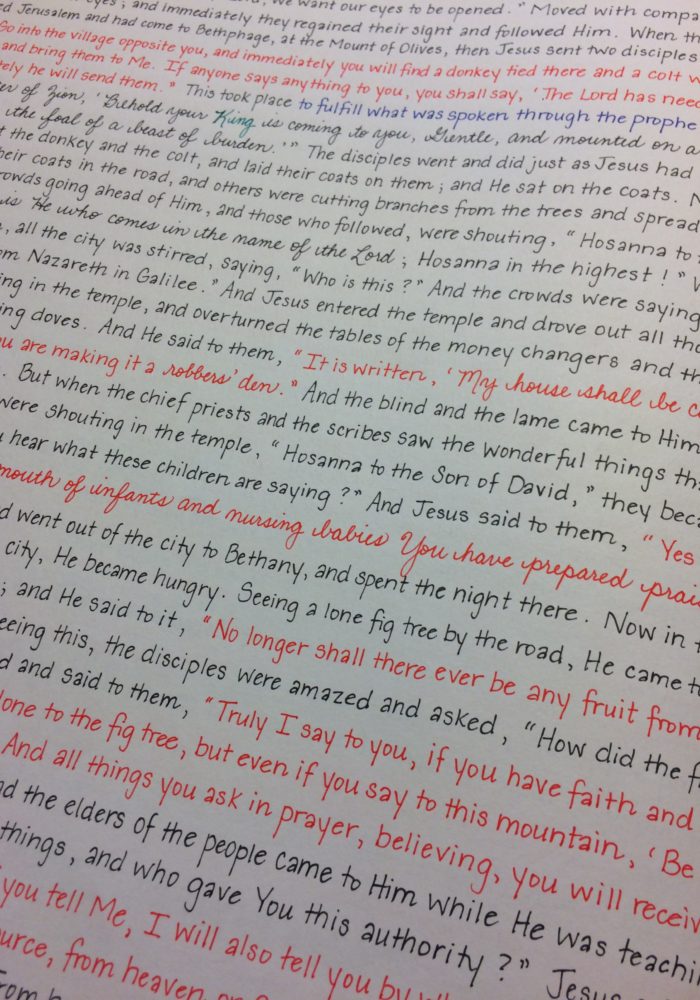 eyes ; and immediately they regained their sight and followed Him. When
Jerusalem and had come to Bethphage, at the Mount of Olives, then Jesus sent two disciples
Go into the village opposite you, and immediately you will find a donkey tied there and a colt
and bring them to Me. If anyone says anything to you, you shall say, ' The Lord has need
he will send them. " This took place to fulfill what was spoken through the
of Zion, ' Behold your King is coming to you, Gentle, and mounted on a
the foal of a beast of burden. ' " The disciples went and did just as Jesus had
the donkey and the colt, and laid their coats on them ; and He sat on the coats.
their coats in the road, and others were cutting branches from the trees and spread
crowds going ahead of Him, and those who followed, were shouting, " Hosanna to
is He who comes in the name of the Lord ; Hosanna in the highest ! "
, all the city was stirred, saying, " Who is this ? " And the crowds were saying
Nazareth in Galilee. " And Jesus entered the temple and drove out all
in the temple, and overturned the tables of the money changers and
doves. And He said to them, " It is written, ' My house shall be
you are making it a robbers' den. " And the blind and the lame came to Him
. But when the chief priests and the scribes saw the wonderful things
were shouting in the temple, " Hosanna to the Son of David, " they
hear what these children are saying ? " And Jesus said to them, " Yes
mouth of infants and nursing babies You have prepared
went out of the city to Bethany, and spent the night there. Now in
city, He became hungry. Seeing a lone fig tree by the road, He came
; and He said to it, " No longer shall there ever be any fruit from
seeing this, the disciples were amazed and asked, " How did the
and said to them, " Truly I say to you, if you have faith and
to the fig tree, but even if you say to this mountain, ' Be
And all things you ask in prayer, believing, you will
the elders of the people came to Him while He was
things, and who gave You this authority ? " Jesus
you tell Me, I will also tell you by
from heaven or
From